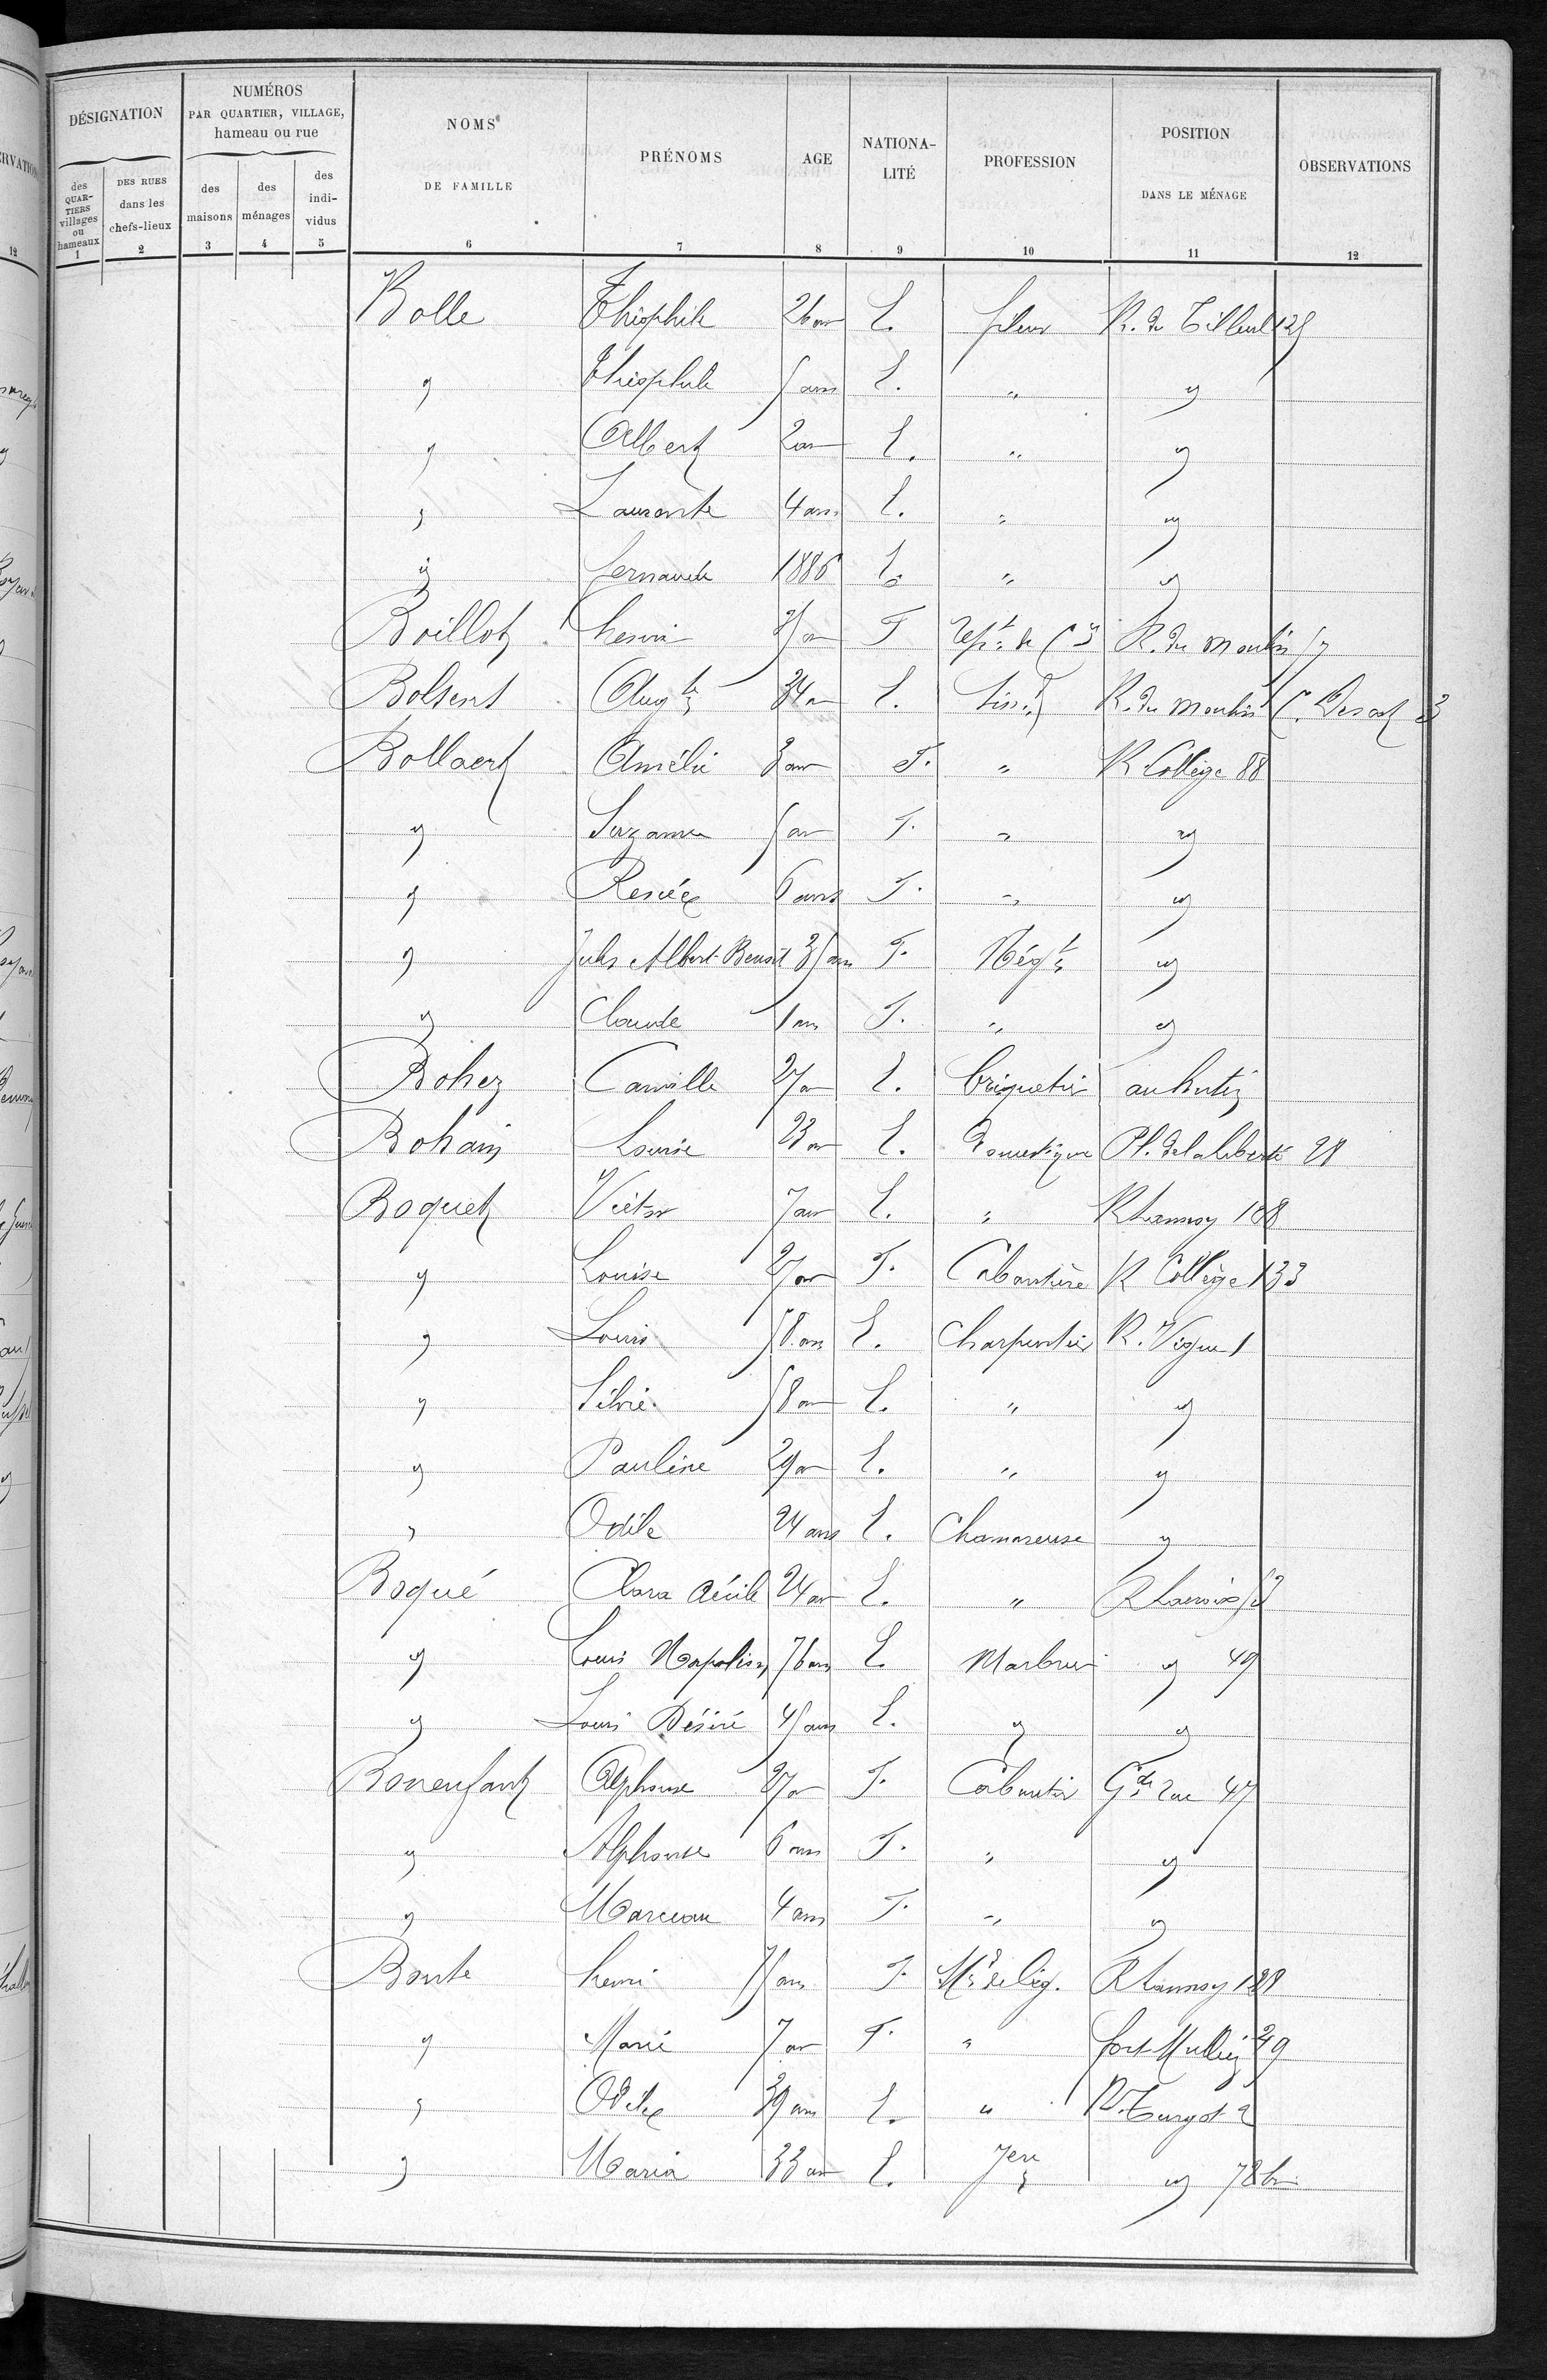 DÉSIGNATION
des QUARTIERS villages ou hameaux 1
DES RUES dans les chefs-lieux 2
NUMÉROS PAR QUARTIER, VILLAGE, hameau ou rue
des maisons 3
des ménages 4
des individus 5
NOMS DE FAMILLE 6
PRÉNOMS 7
AGE 8
NATIONALITÉ 9
PROFESSION 10
POSITION DANS LE MÉNAGE 11
OBSERVATIONS 12
Bolle Théophile 26 ans E. fileur R. du Tilleul 125
" Théophile 5 ans E. " "
" Albert 2 ans E. " "
" Laurante 4 ans E. " "
" fernande 1886 E. " "
Boillot henri F R. du moulin 57
Bolsens Aug.te 34 a E. tiss.d R. du moulin C. 3
Bollaert Amélie 3 ans F. " R Collège 88
" Suzanne 5 ans F. " "
" Renée 6 ans F. " "
" Jules Albert Benoit 35 ans F. Nég.t "
" Claude 1 an F. " "
Bohez Camille 27 a E. briquetier au hutin
Bohain Louise 23 an E. domestique Pl. de la liberté 28
Boquet Victor 7 ans E. " R Lannoy 188
" Louise 27 an F. Cabaretière R Collège 133
" Louis 58 ans E. Charpentier R. Vigne 1
" Silvie 58 an E. " "
" Pauline 29 an E. " "
" Odile 24 ans E. "
Boqué Clara Cécile 24 an E. " R Lacroix 53
" Louis Napoléon 76 ans E. Marbrier " 49
" Louis Désiré 45 ans E. " "
Bonenfant Alphonse 27 a F. Cabaretier G.de rue 47
" Alphonse 6 ans F. " "
" Marceau 4 ans F. " "
Bonte henri 75 ans F. M.d de lég. R Lannoy 128
" Marie 7 an F. " fort Mullier 29
" Odile 39 ans E. " R. Turgot 2
" Maria 33 an E. Jere " 78 bis